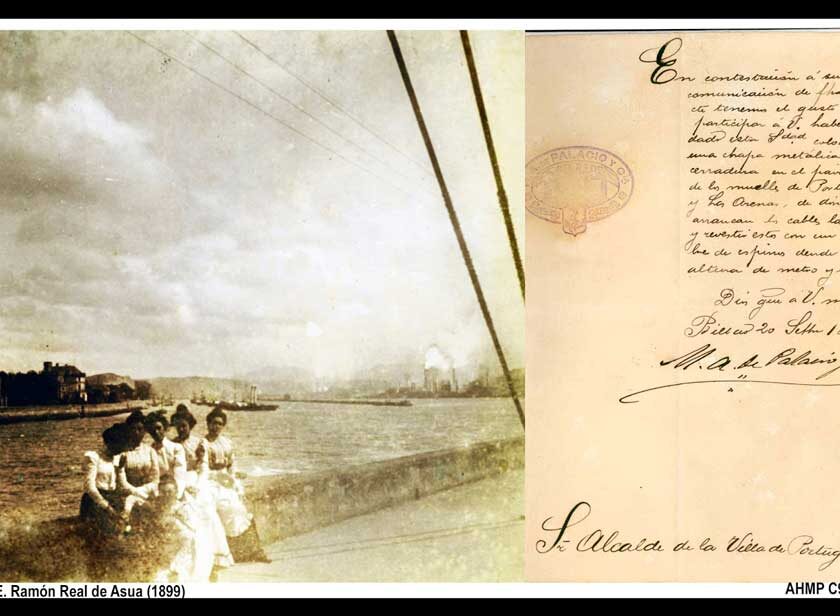 En contestación á su
comunicación de
tenemos el gusto
participar á V. habe
dado esta Sdad. colo
una chapa metálica
cerradura en el
de los muelles de Por
y Las Arenas, de don
arrancan los cables la
y revestir estos con un
bre de espinos desde
altura de metro y
Dios gue á V. m
Bilbao 20 Setbre 1
M. A. de Palacio
PALACIO Y Cia
Sr. Alcalde de la Villa de Portug
E. Ramón Real de Asua (1899)
AHMP C9